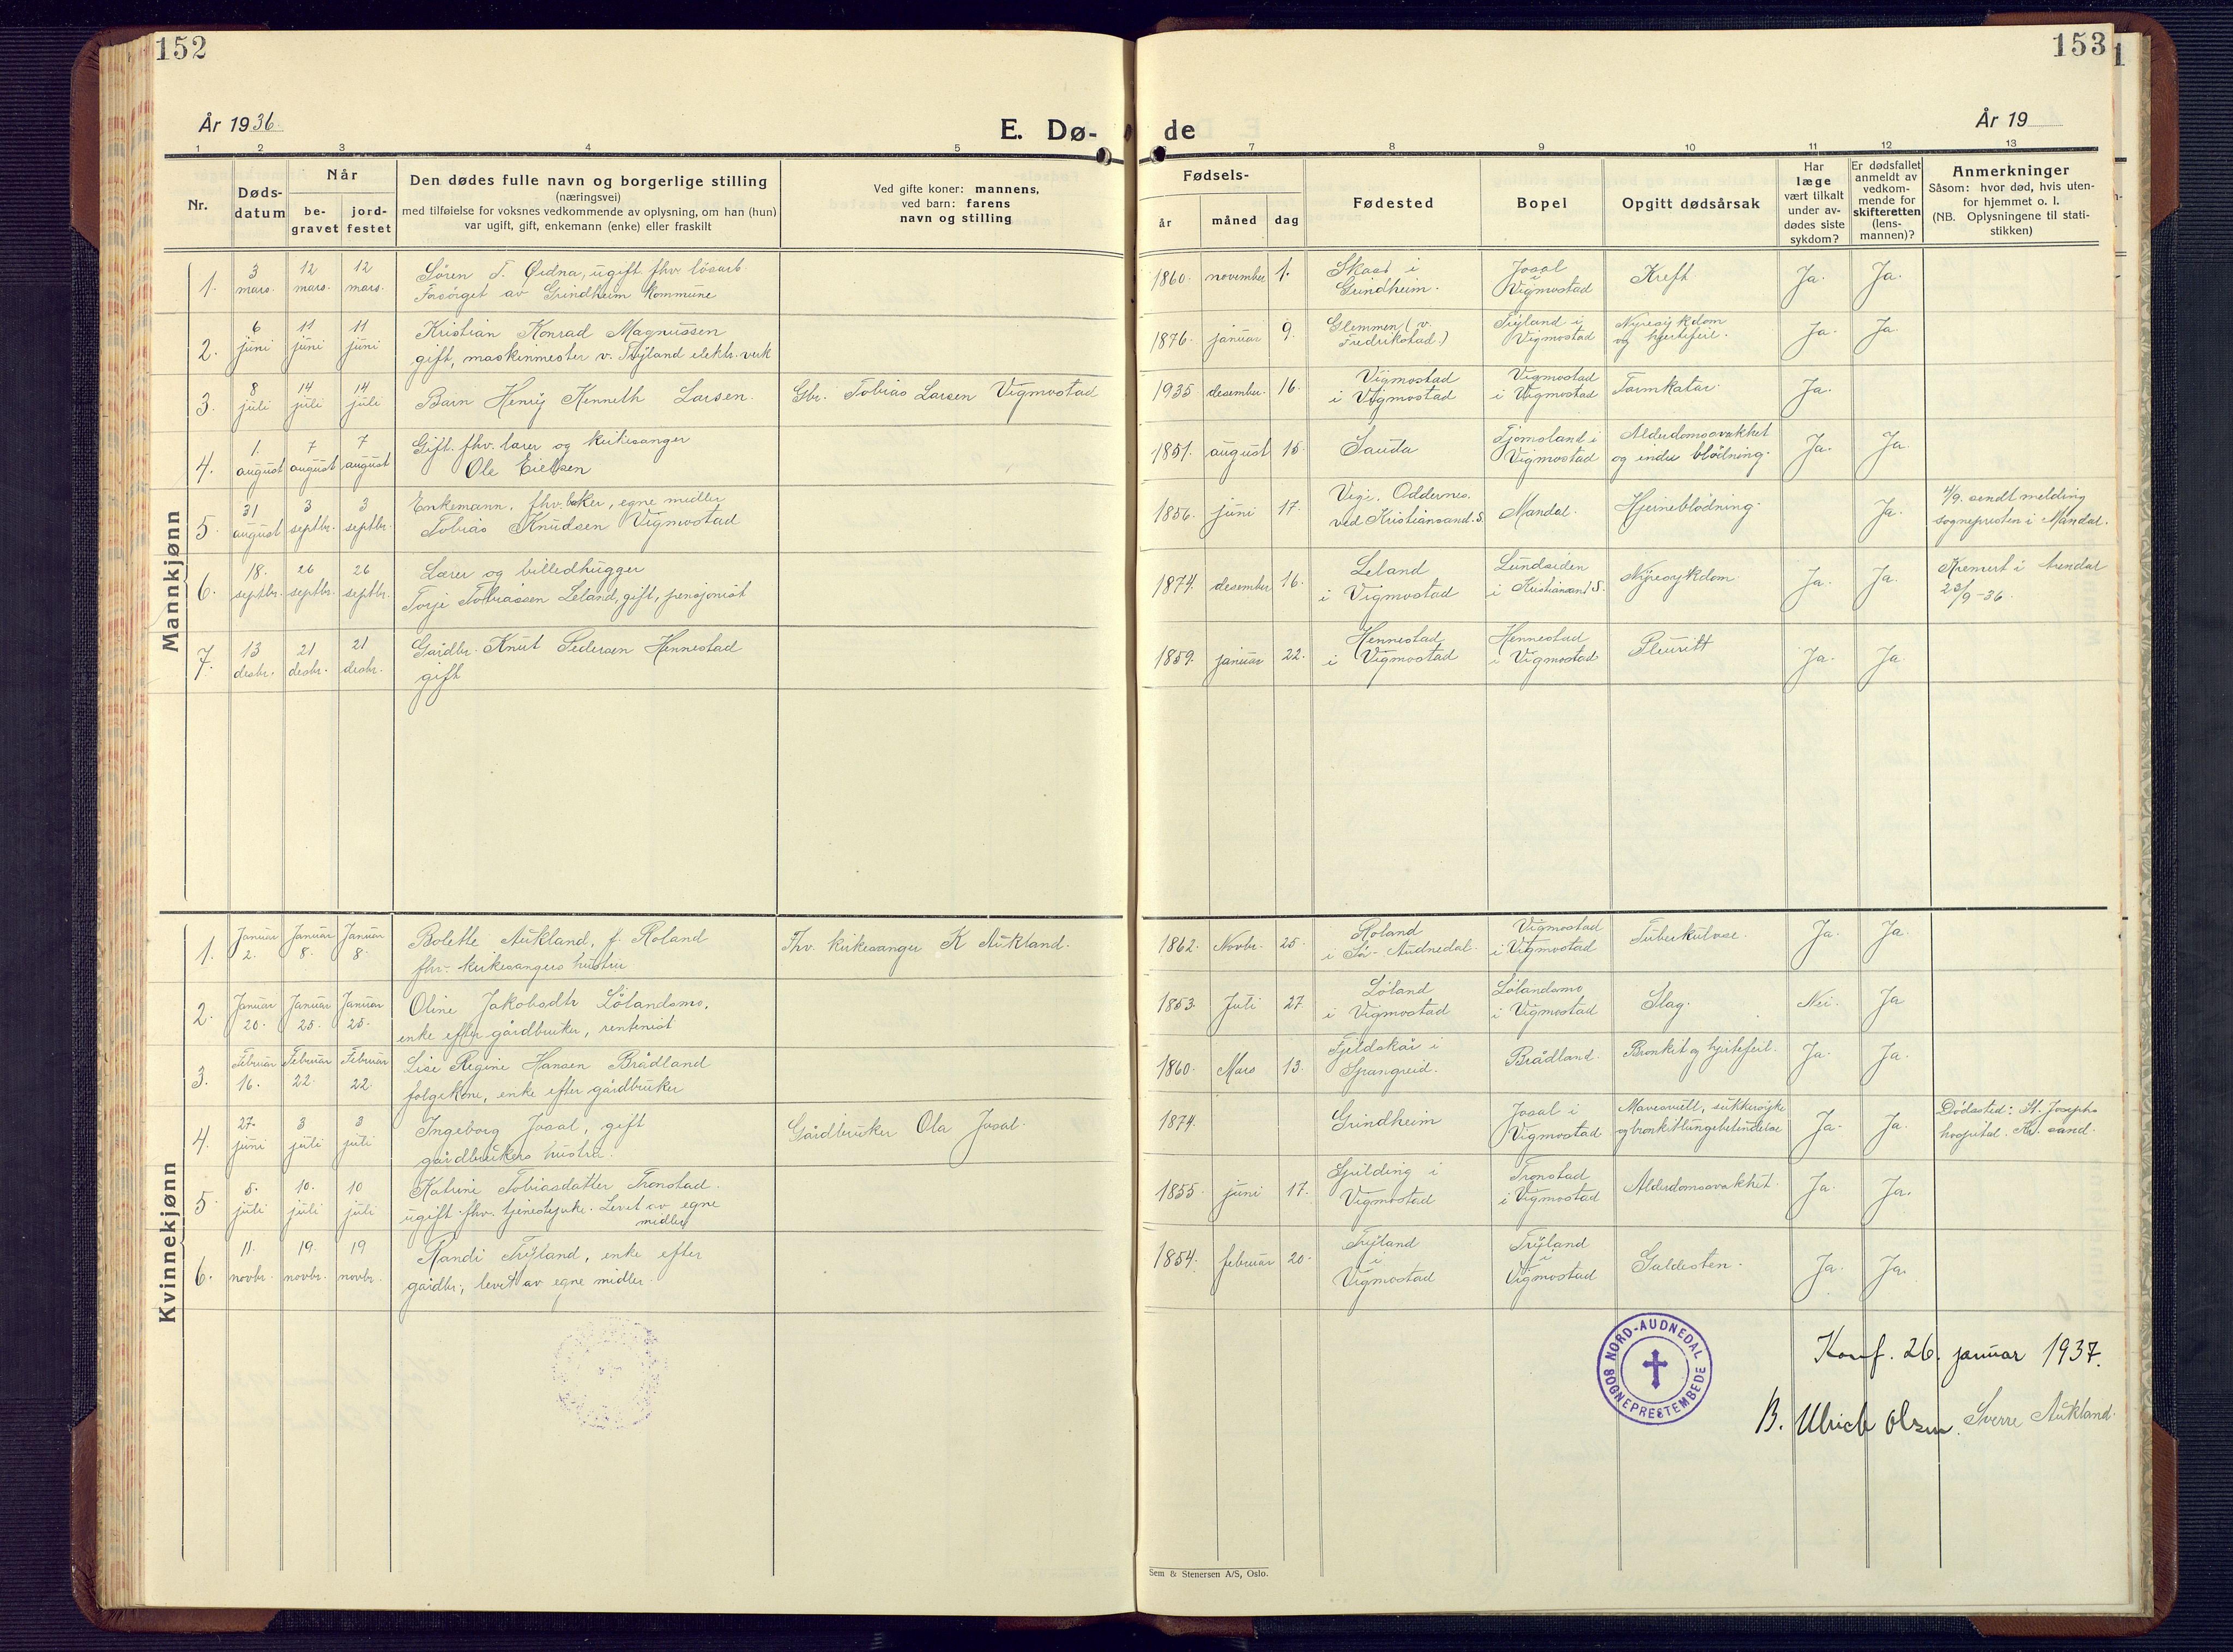 152
153
År 1936.
E. Dø-
de
År 19
1 2 3 4 5
7 8 9 10 11 12 13
Nr.
Døds-
datum
Når
be-
gravet
jord-
festet
Den dødes fulle navn og borgerlige stilling
(næringsvei)
med tilføielse for voksnes vedkommende av oplysning, om han (hun)
var ugift, gift, enkemann (enke) eller fraskilt
Ved gifte koner: mannens,
ved barn: farens
navn og stilling
Fødsels-
år måned dag
Fødested
Bopel
Opgitt dødsårsak
Har
læge
vært tilkalt
under av-
dødes siste
sykdom?
Er dødsfallet
anmeldt av
vedkom-
mende for
skifteretten
(lens-
mannen)?
Anmerkninger
Såsom: hvor død, hvis uten-
for hjemmet o. l.
(NB. Oplysningene til stati-
stikken)
Mannkjønn
1. 3 mars. 12 mars. 12 mars.
Sören T. Öidna, ugift fhv. lösarb.
Forsörget av Grindheim kommune
1860. november 1. Skaar i Grindheim. Josal i Vigmostad Kreft Ja. Ja.
2. 6 juni 11 juni 11 juni
Kristian Konrad Magnussen
gift, maskinmester v. Tryland elektr. verk
1876. januar 9. Glemmen (v. Fredrikstad.) Tryland i Vigmostad Nyresykdom og hjertefeil. Ja. Ja.
3. 8 juli 14 juli 14 juli
Barn Henry Kenneth Larsen.
Gbr. Tobias Larsen Vigmostad
1935 desember. 16. Vigmostad i Vigmostad Vigmostad i Vigmostad Tarmkatar. Ja.
4. 1. august 7 august 7 august
Gift. fhv. lærer og kirkesanger
Ole Eielsen
1851. august 15. Sauda Tjomsland i Vigmostad Alderdomssvakhet og indre blödning. Ja. Ja.
5. 31 august 3 septbr. 3 septbr.
Enkemann. fhv. baker, egne midler
Tobias Knudsen Vigmostad
1856. juni 17. Oddernes. ved Kristiansand. S. Mandal. Hjerneblödning. Ja.
4/9. sendt melding
sognepresten i Mandal.
6. 18. septbr. 26 septbr. 26 septbr.
Lærer og billedhugger
Torje Tobiassen Leland, gift, pensjonist
1874. desember 16. Leland i Vigmostad Lundsiden i Kristiansand S. Nyresykdom Ja. Ja.
Kremert i Arendal
23/9-36.
7. 13 desbr. 21 desbr. 21 desbr.
Gardbr. Knut Pedersen Hennestad
gift
1859. januar 22. Hennestad i Vigmostad Hennestad i Vigmostad Pleuritt Ja. Ja.
Kvinnekjønn
1. Januar 2. Januar 8. Januar 8.
Bolette Aukland, f. Roland
fhv. kirkesangers hustru
Fhv. kirkesanger K Aukland.
1862. Novbr. 25. Roland i Sör-Audnedal. Vigmostad i Vigmostad Tuberkulose. Ja. Ja.
2. Januar 20. Januar 25. Januar 25.
Oline Jakobsdtr Lölandsmo,
enke efter gårdbruker, rentenist
1853. Juli 27. Löland i Vigmostad Lölandsmo i Vigmostad Slag. Nei. Ja
3. Februar 16. Februar 22. Februar 22
Lise Regine Hansen Brådland
folgekone, enke efter gårdbruker
1860. Mars 13. Fjeldskår i Spangreid. Brådland. Bronkit og hjertefeil. Ja. Ja.
4. 27. juni 3 juli 3 juli
Ingeborg Josal, gift
gårdbrukers hustru.
Gårdbruker Ola Josal.
1874. Grindheim Josal i Vigmostad Mavesvulst, sukkersyke og bronkitlungebetendelse Ja. Ja.
Dödssted: St. Josephs
hospital. Kr. sand.
5. 5. juli 10. juli 10 juli
Katrine Tobiasdatter Tronstad.
ugift. fhv. tjenestepike. Levet av egne
midler
1855. juni 17. Spilding i Vigmostad Tronstad i Vigmostad Alderdomssvakhet. Ja. Ja.
6. 11. novbr. 19. novbr. 19 novbr.
Randi Tryland, enke efter
gårdbr., levet av egne midler.
1854. februar 20. Tryland i Vigmostad Tryland i Vigmostad Galdesten. Ja. Ja.
NORD-AUDNEDAL SOGNEPRESTEMBEDE
Konf. 26. januar 1937.
B. Ulrich Olsen. Sverre Aukland.
Sem & Stenersen A/S, Oslo.